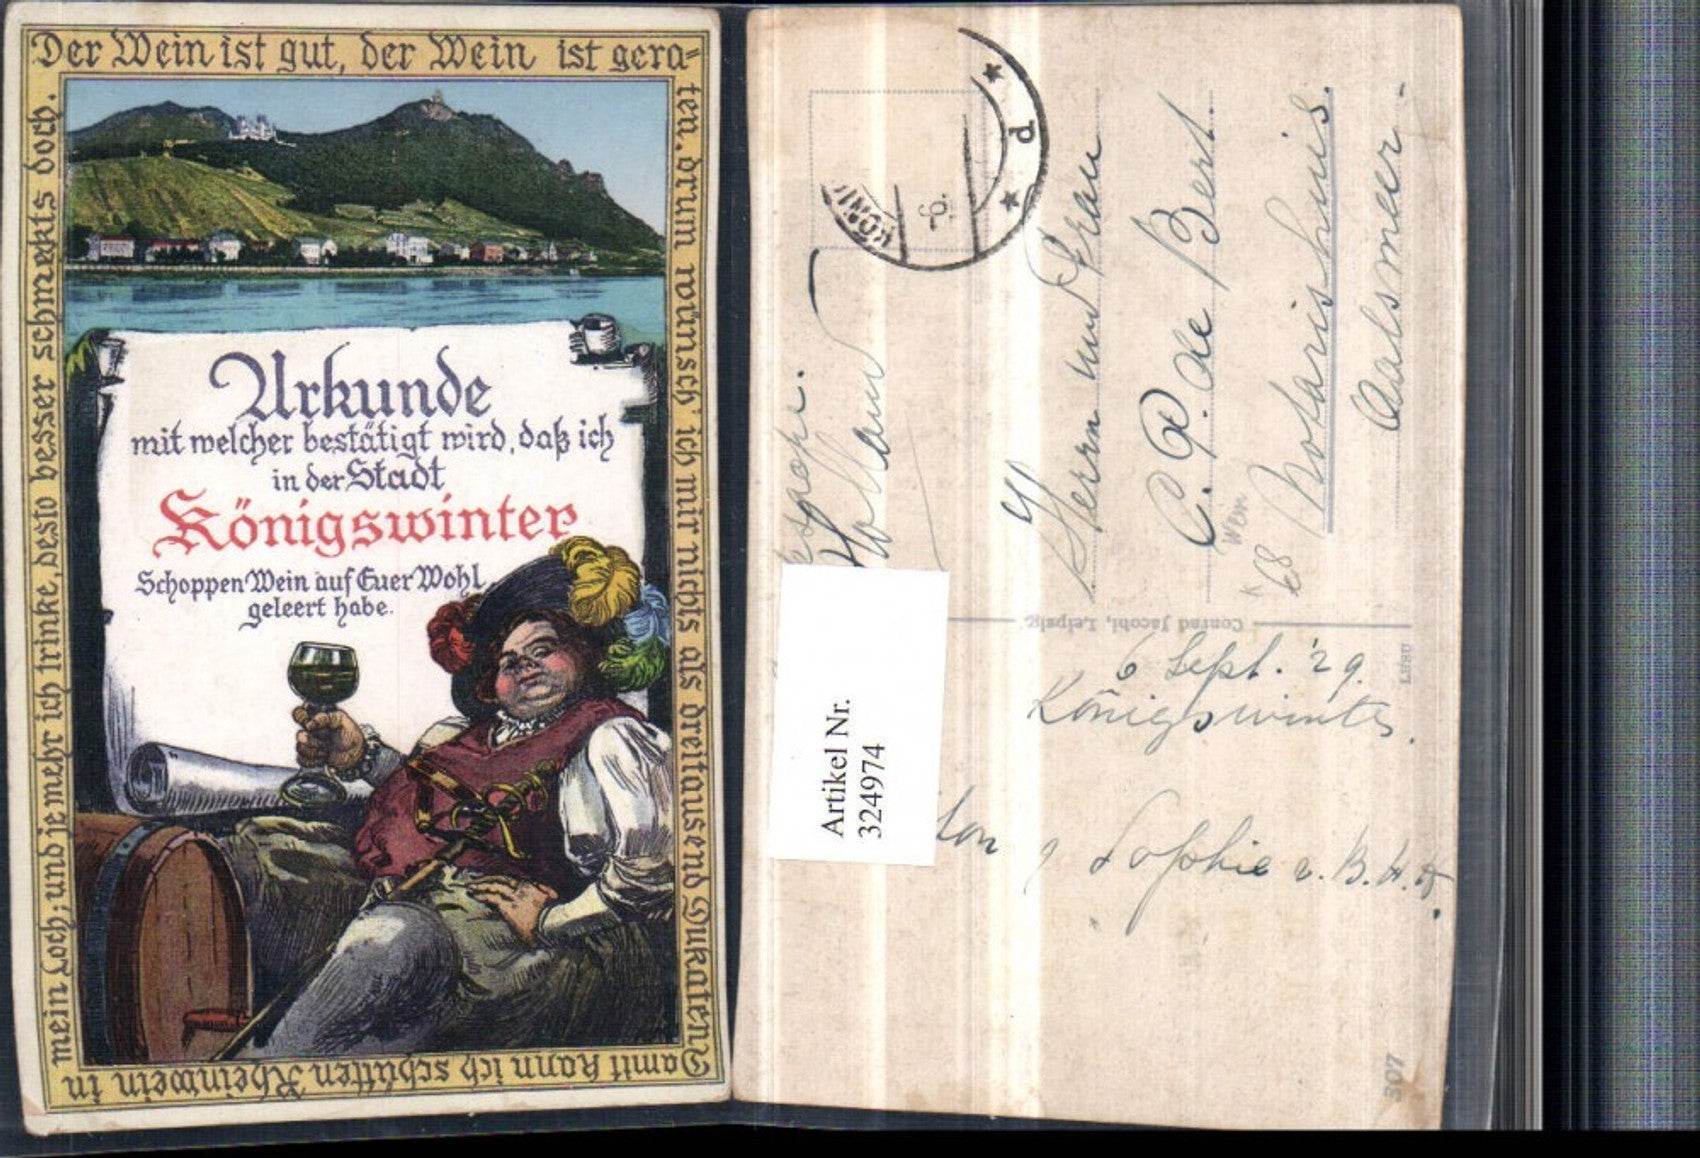 Der Wein ist gut, der Wein ist gera=
ten, drum wünsch ich mir nichts als dreitausend Dukaten
Damit kann ich schütten Rheinwein in
mein Loch; und je mehr ich trinke, desto besser schmekts doch.
Urkunde
mit welcher bestätigt wird, daß ich
in der Stadt
Königswinter
Schoppen Wein auf Euer Wohl
geleert habe.
KÖNI
6.
d
Holland
Herrn und Frau
C. P. de Bert.
Notarishuis.
Aalsmeer
Wein
K 68
Conrad Jacobi, Leipzig.
6 Sept. '29.
Königswinter.
Sophie v. B.
Artikel Nr.
324974
307